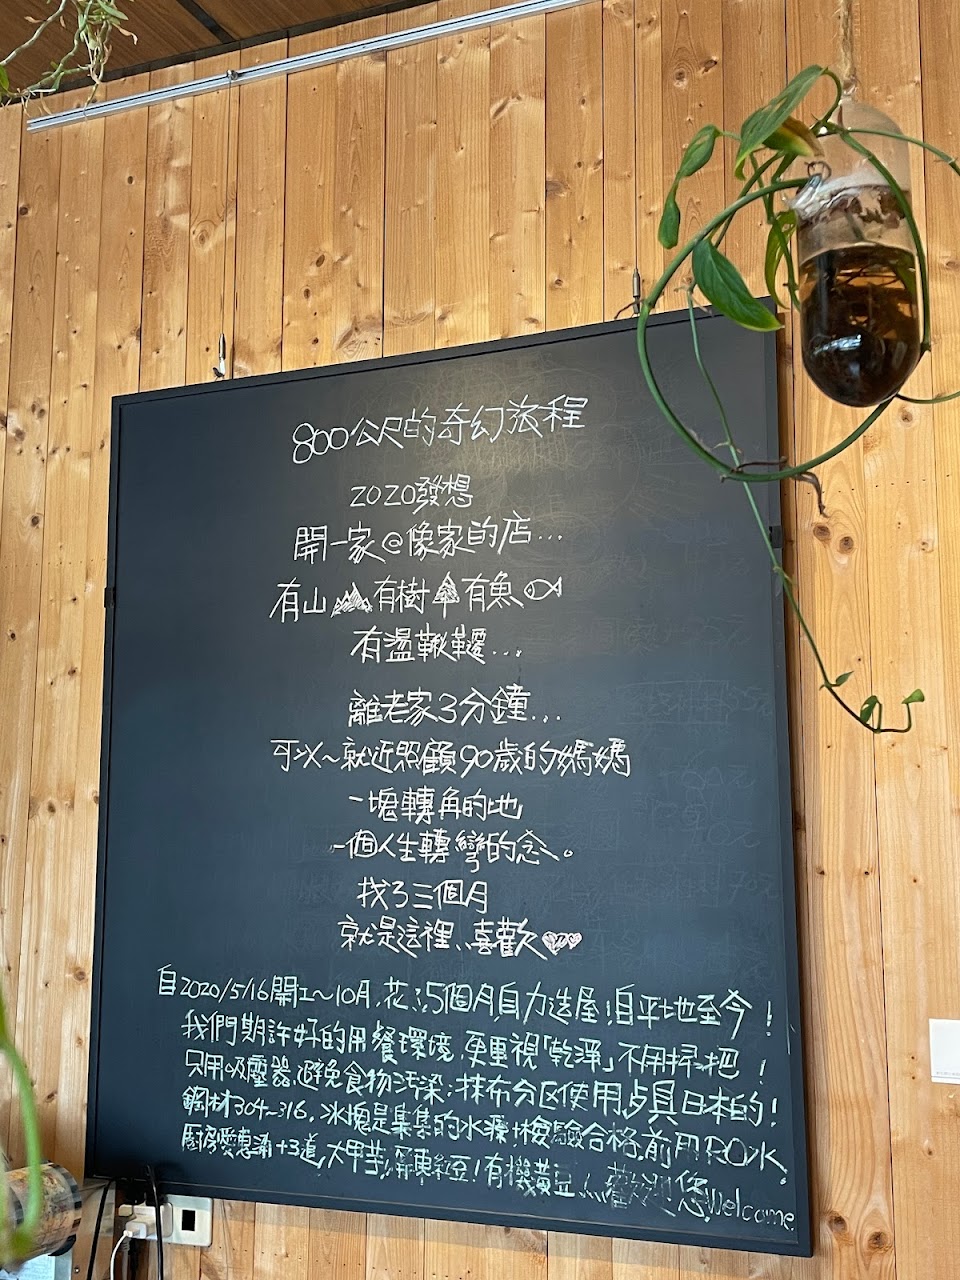 800公尺的奇幻旅程
2020發想
開一家@像家的店...
有山有樹有魚
有盪鞦韆...
離老家3分鐘...
可以~就近照顧90歲的媽媽
一塊轉角的地
一個人生轉彎的念。
找了三個月
就是這裡..喜歡
自2020/5/16開工~10月,花了5個月自力造屋!自平地至今!
我們期許好的用餐環境,更重視「乾淨」不用掃把!
只用吸塵器,避免食物污染;抹布分区使用 日本的!
鋼材304~316,冰塊是集集的水源+檢驗合格前用RO水,
廚房愛惠浦+3道,大甲芋!屏東紅豆!有機黃豆...歡迎您Welcome